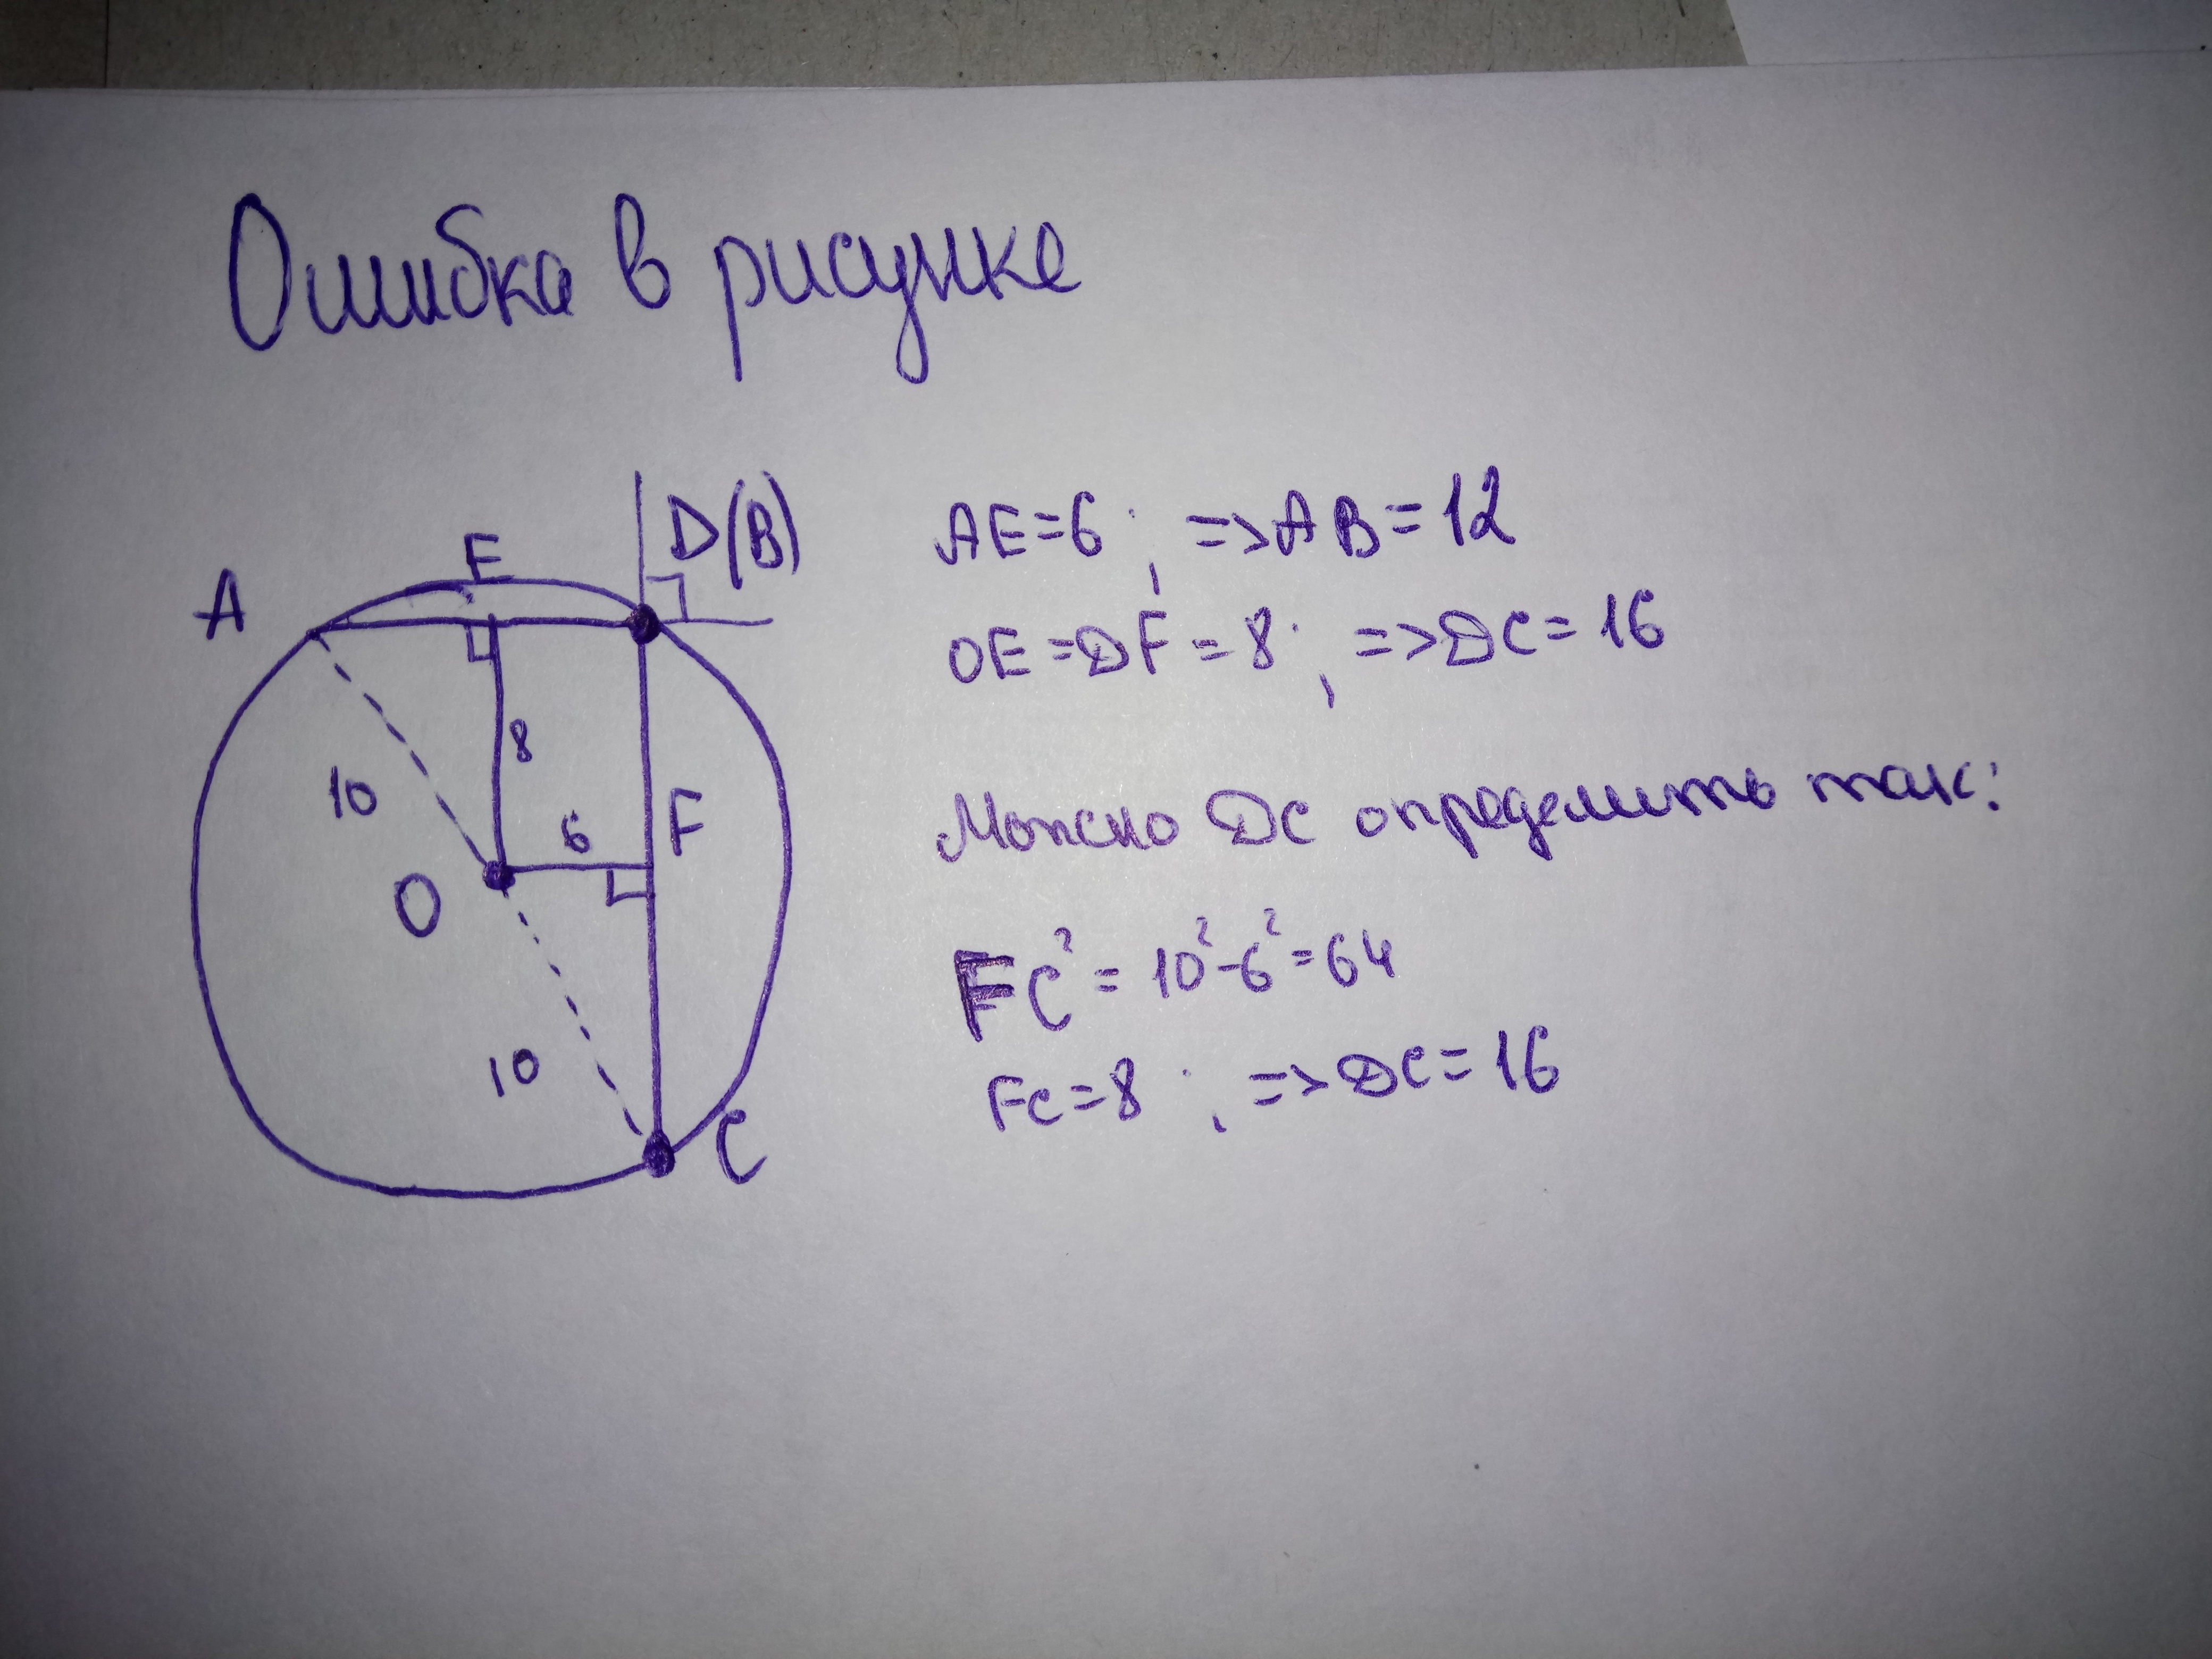 Ошибка в рисунке
E
D(B)
A
8
10
6
F
O
10
C
AE=6; =>AB=12
OE=DF=8; =>DC=16
Можно DC определить так:
FC²=10²-6²=64
FC=8; =>DC=16